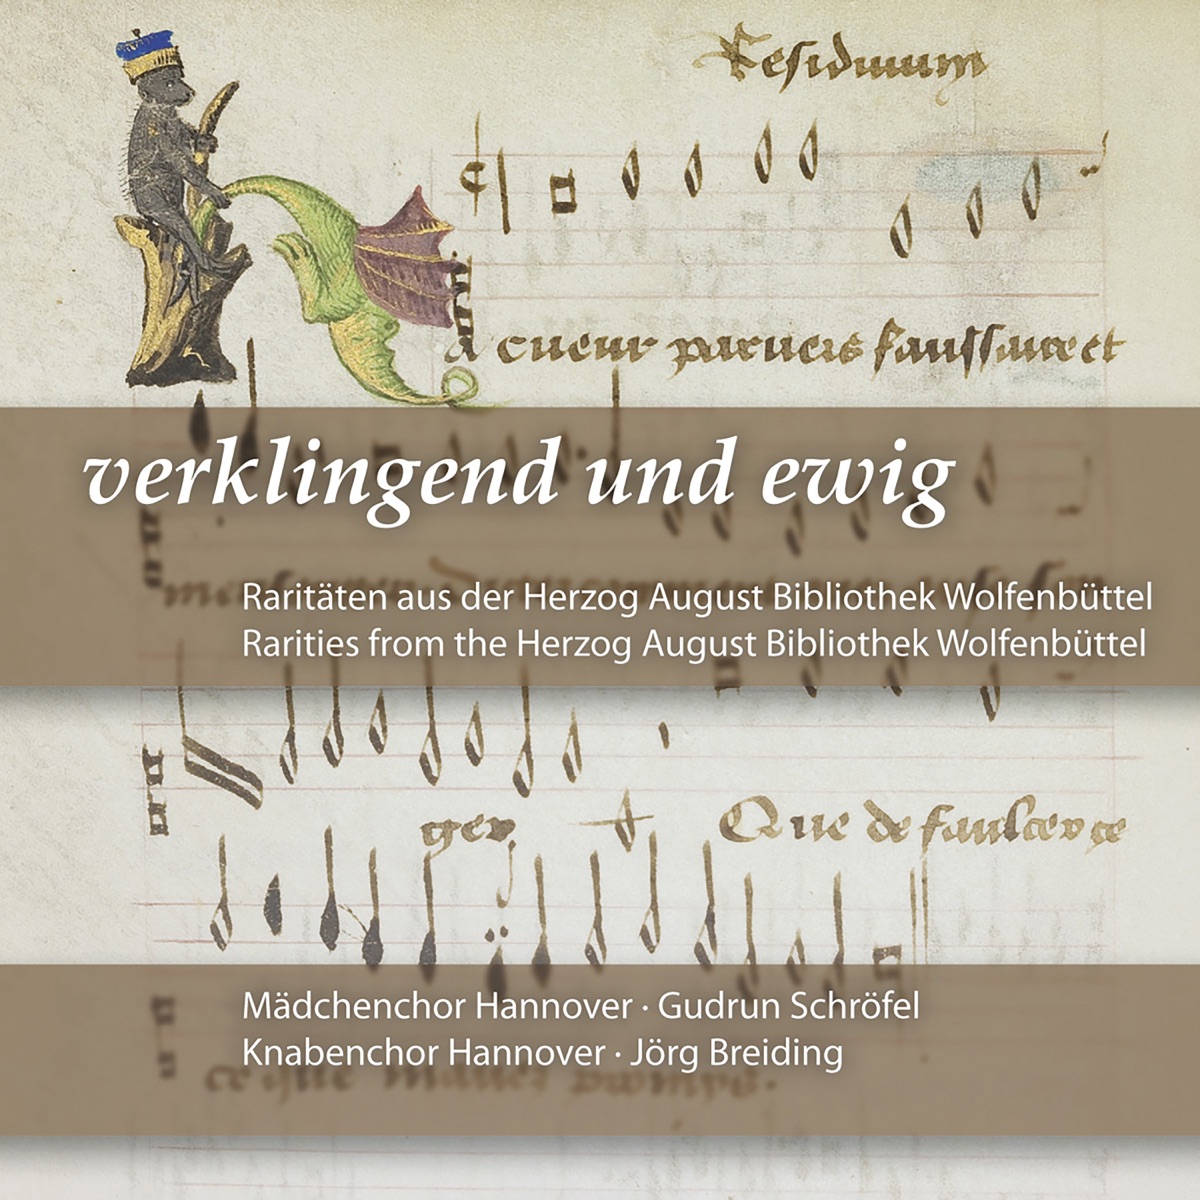 Residuum
a cueur parvers faulssaire et
verklingend und ewig
Raritäten aus der Herzog August Bibliothek Wolfenbüttel
Rarities from the Herzog August Bibliothek Wolfenbüttel
ger Que de
Mädchenchor Hannover · Gudrun Schröfel
Knabenchor Hannover · Jörg Breiding